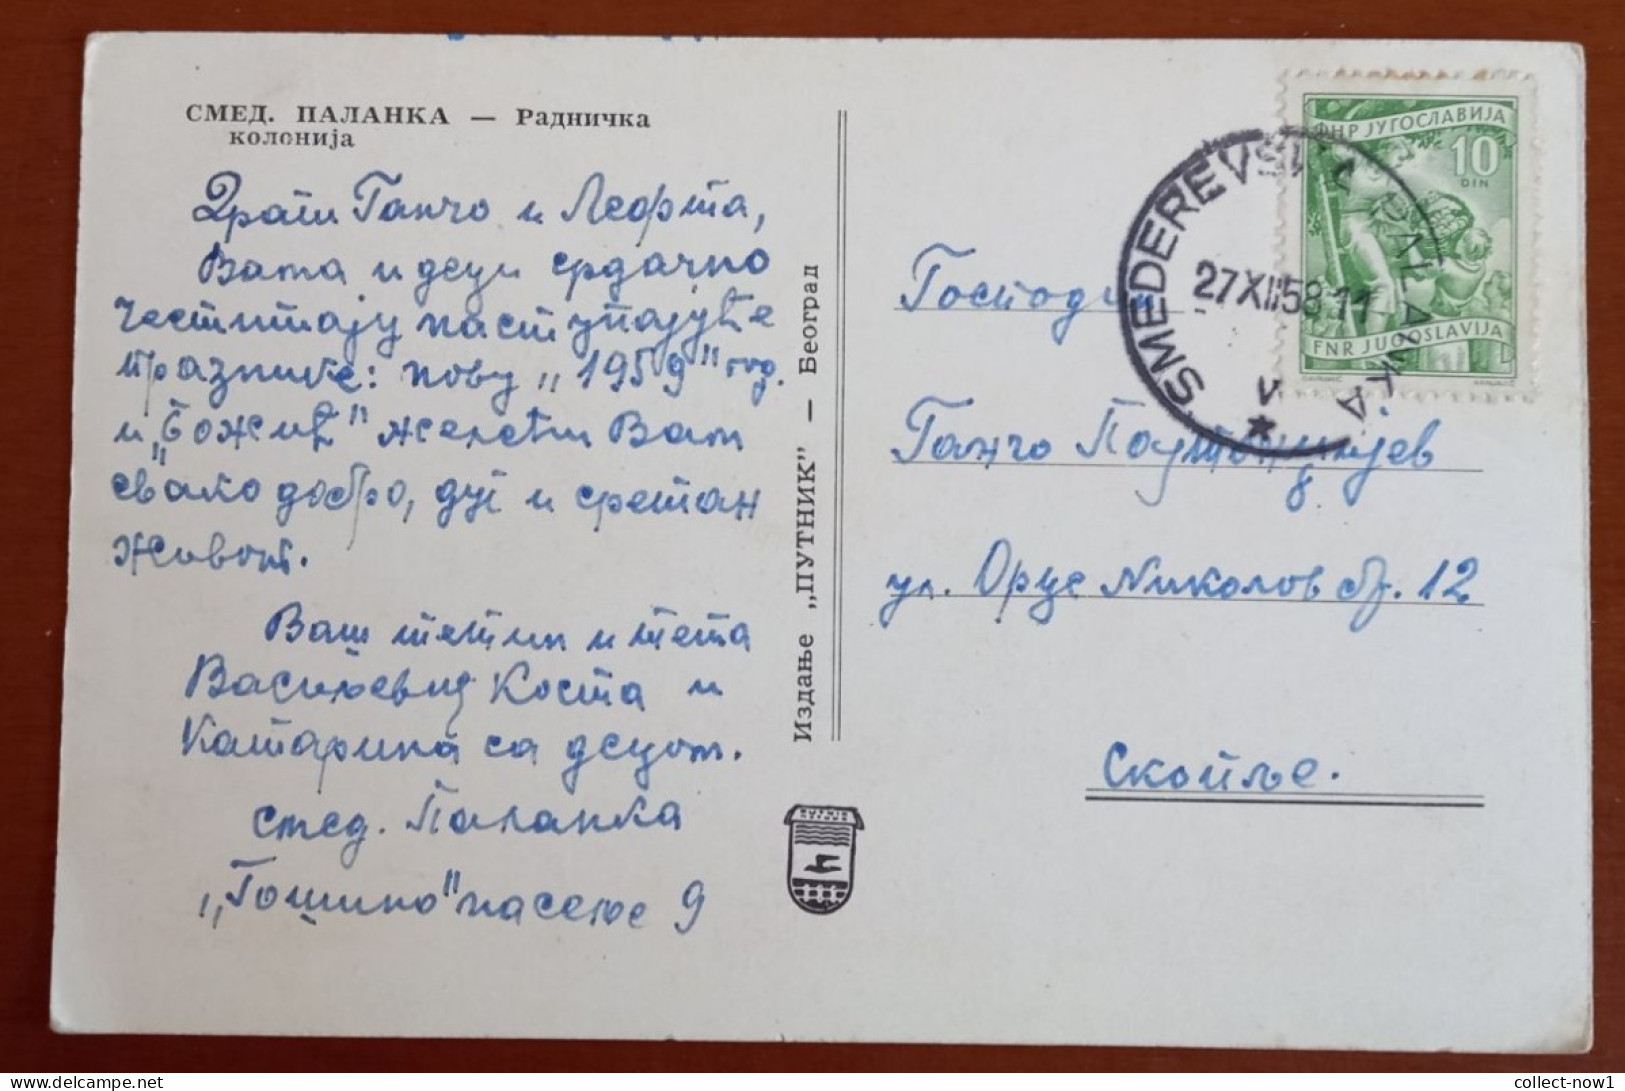 СМЕД. ПАЛАНКА — Радничка
колонија
Драги Ганчо и
Вама и деци срдачно
честитају наступајуће
празнике: нову „1959" год.
и „Божић" желећи Вам
свако добро, дуг и сретан
живот.
Ваш тетин и тета
Василевић Коста и
Катарина са децом.
Смед. Паланка
„Гошино" насеље 9
Издање „ПУТНИК" — Београд
ФНР ЈУГОСЛАВИЈА
10
DIN
FNR JUGOSLAVIJA
SMEDEREVSKA PALANKA
27XII58-11
V
Господин
Ганчо
ул. Орце Николов бр. 12
Скопље.
collect-now1